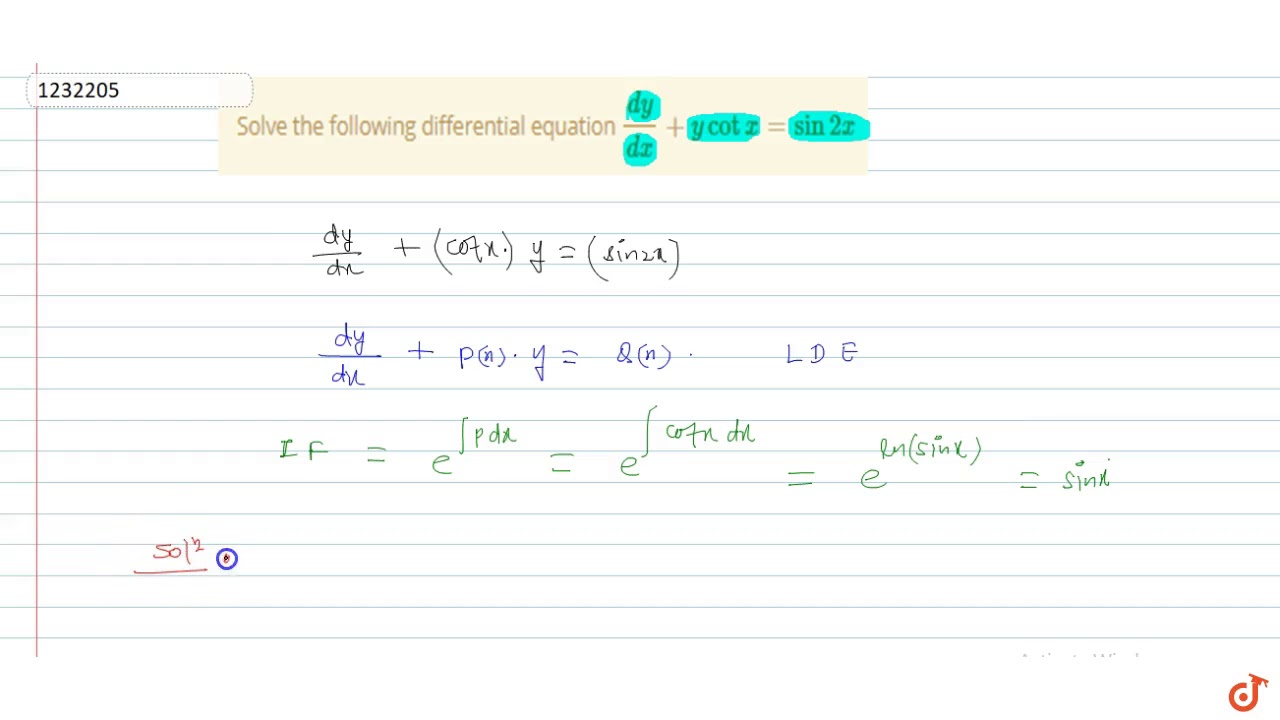 1232205
Solve the following differential equation dy/dx + y cot x = sin 2x
dy/dx + (cot x.) y = (sin2x)
dy/dx + P(x). y = Q(x). L D E
I F = e^∫pdx = e^∫cotx dx = e^ln(sinx) = sinx
Solⁿ